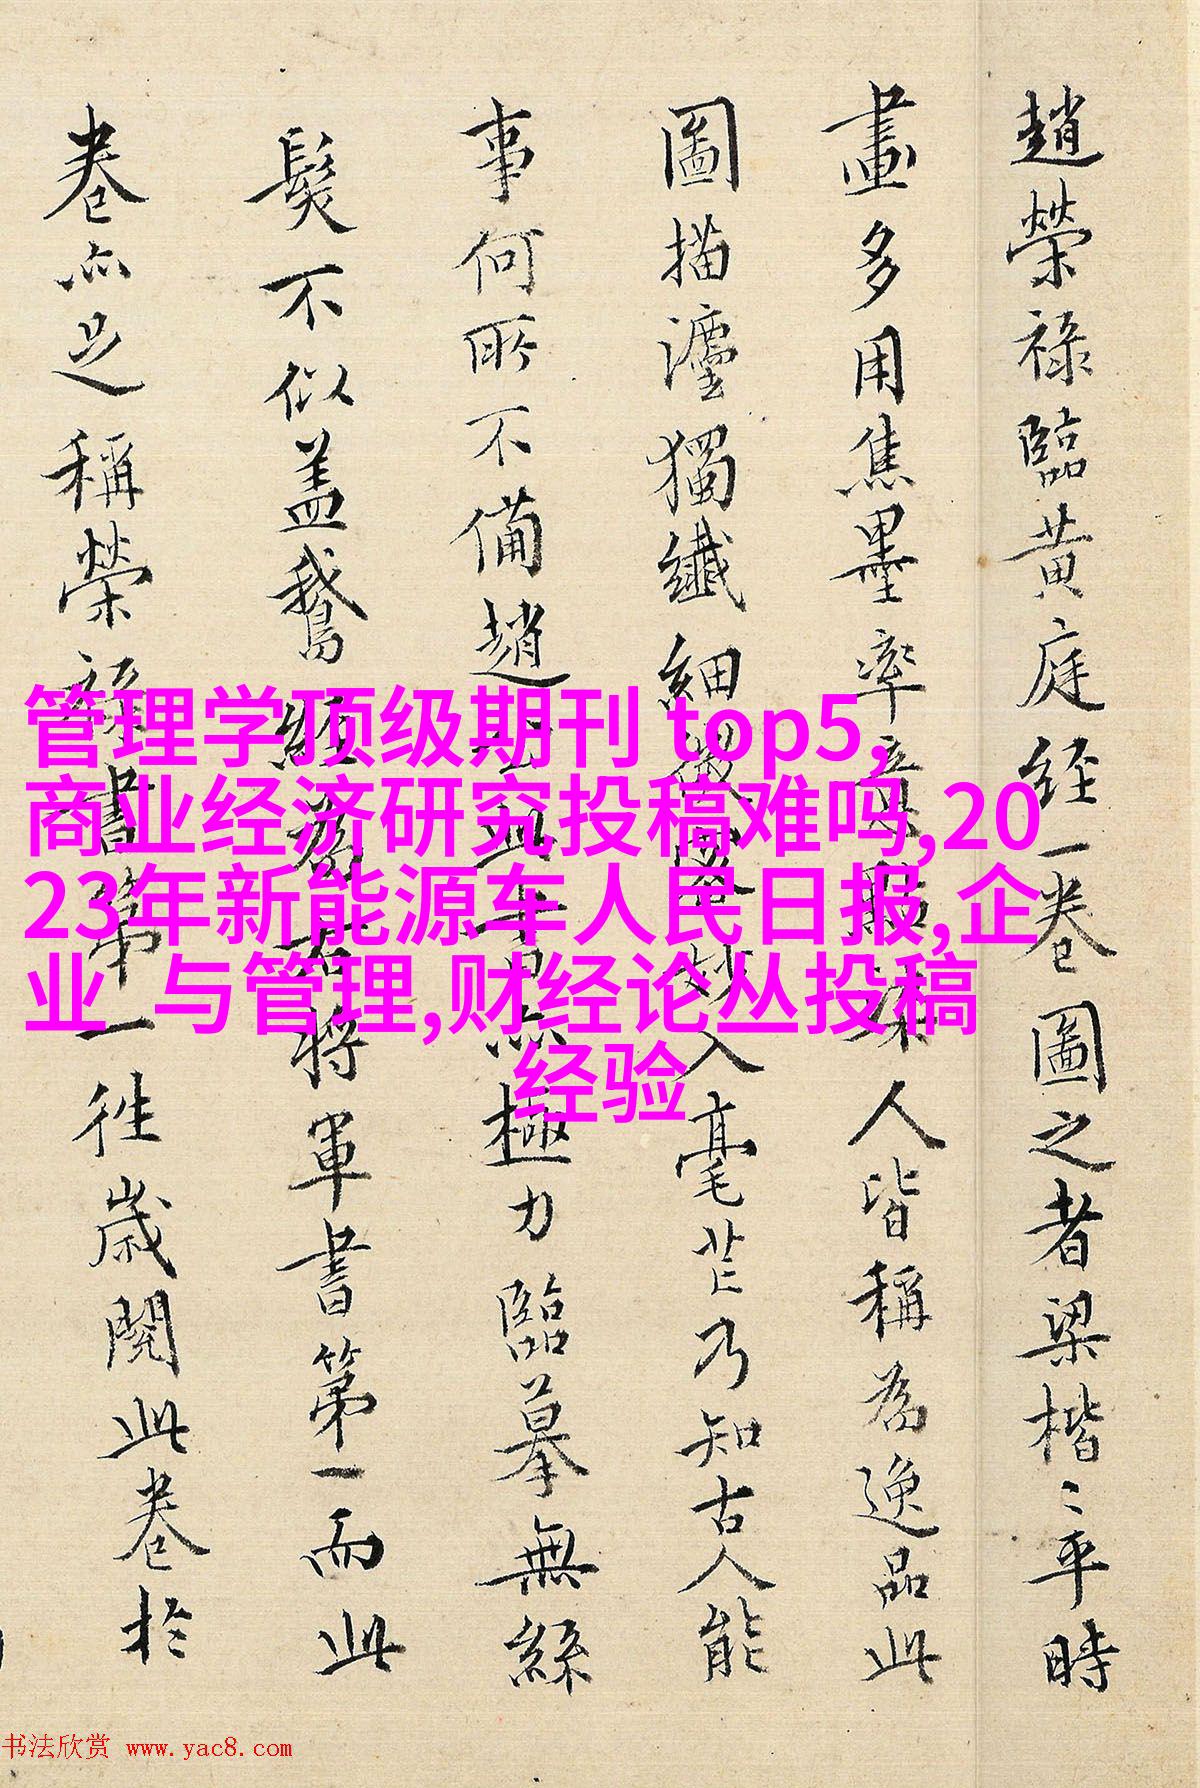 趙榮祿臨黄庭経一卷圖之者梁楷〻平時
畫多用焦墨率意
人皆稱為逸品此
圖描瀍獨纖細
入毫芒乃知古人能
事何所不備趙
極力臨摹無絲
髮不似盖鵝経為右将軍書第一而此
卷亦足称榮祿書第一往歲閱此卷於
管理学顶级期刊 top5,
商业经济研究投稿难吗,20
23年新能源车人民日报,企
业 与管理,财经论丛投稿
经验
书法欣赏 www.yac8.com